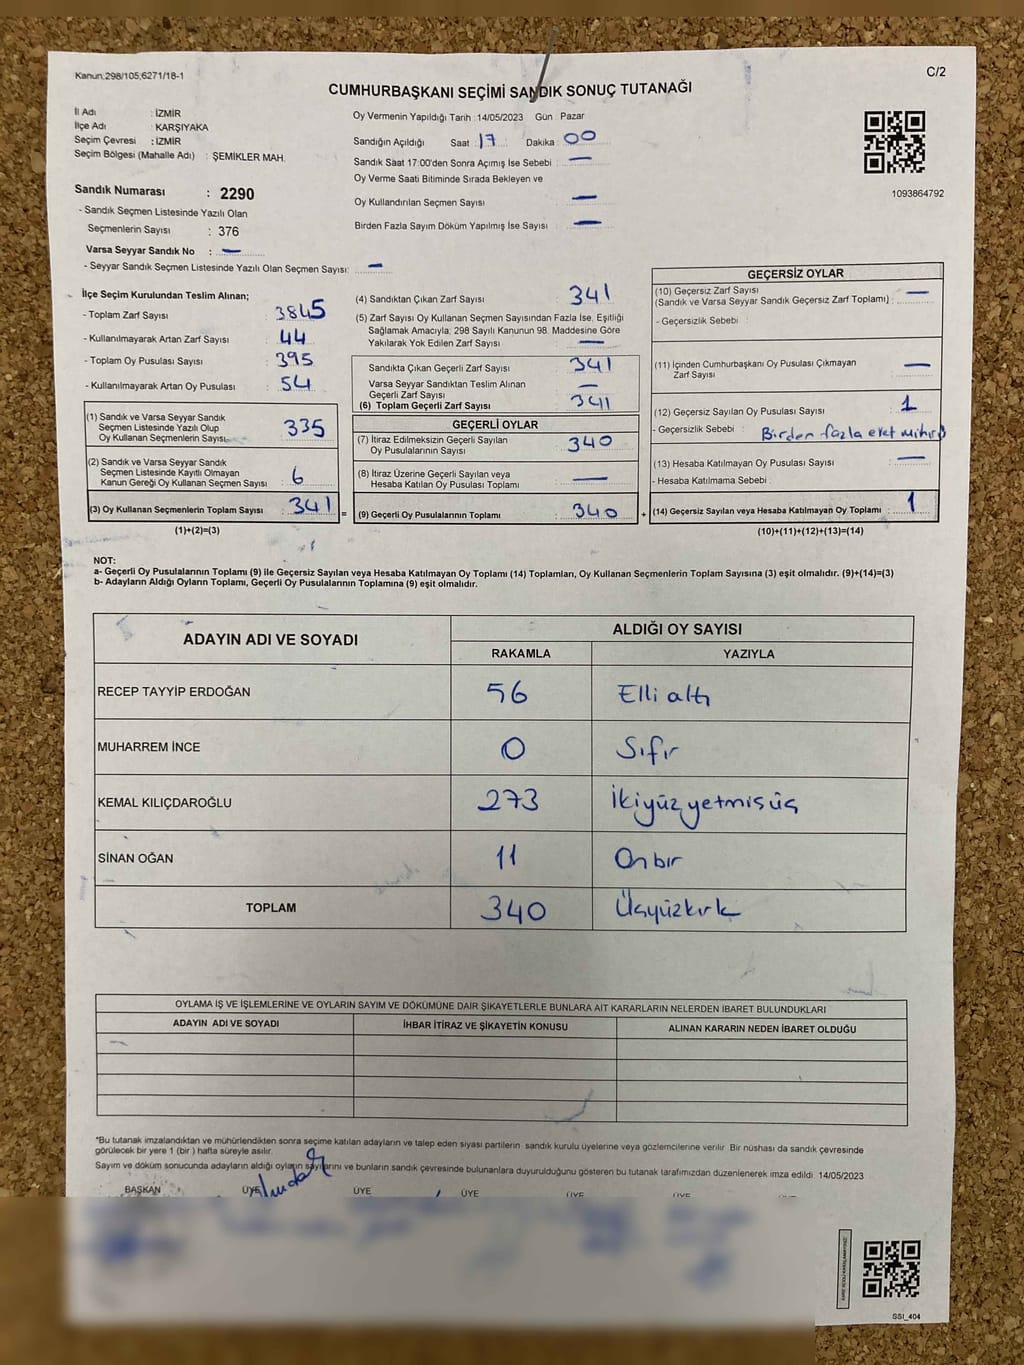 Kanun;298/105;6271/18-1
C/2
CUMHURBAŞKANI SEÇİMİ SANDIK SONUÇ TUTANAĞI
İl Adı : İZMİR
İlçe Adı : KARŞIYAKA
Seçim Çevresi : İZMİR
Seçim Bölgesi (Mahalle Adı) : ŞEMİKLER MAH.
Sandık Numarası : 2290
- Sandık Seçmen Listesinde Yazılı Olan
Seçmenlerin Sayısı : 376
Varsa Seyyar Sandık No : —
- Seyyar Sandık Seçmen Listesinde Yazılı Olan Seçmen Sayısı: —
Oy Vermenin Yapıldığı Tarih : 14/05/2023 Gün : Pazar
Sandığın Açıldığı Saat 17 Dakika 00
Sandık Saat 17:00'den Sonra Açımış İse Sebebi : —
Oy Verme Saati Bitiminde Sırada Bekleyen ve
Oy Kullandırılan Seçmen Sayısı —
Birden Fazla Sayım Döküm Yapılmış İse Sayısı : —
1093864792
İlçe Seçim Kurulundan Teslim Alınan;
- Toplam Zarf Sayısı : 3845
- Kullanılmayarak Artan Zarf Sayısı : 44
- Toplam Oy Pusulası Sayısı : 395
- Kullanılmayarak Artan Oy Pusulası : 54
(1) Sandık ve Varsa Seyyar Sandık
Seçmen Listesinde Yazılı Olup
Oy Kullanan Seçmenlerin Sayısı : 335
(2) Sandık ve Varsa Seyyar Sandık
Seçmen Listesinde Kayıtlı Olmayan
Kanun Gereği Oy Kullanan Seçmen Sayısı : 6
(3) Oy Kullanan Seçmenlerin Toplam Sayısı : 341
(1)+(2)=(3)
=
(4) Sandıktan Çıkan Zarf Sayısı : 341
(5) Zarf Sayısı Oy Kullanan Seçmen Sayısından Fazla İse, Eşitliği
Sağlamak Amacıyla, 298 Sayılı Kanunun 98. Maddesine Göre
Yakılarak Yok Edilen Zarf Sayısı : —
Sandıkta Çıkan Geçerli Zarf Sayısı : 341
Varsa Seyyar Sandıktan Teslim Alınan
Geçerli Zarf Sayısı : —
(6) Toplam Geçerli Zarf Sayısı : 341
GEÇERLİ OYLAR
(7) İtiraz Edilmeksizin Geçerli Sayılan
Oy Pusulalarının Sayısı : 340
(8) İtiraz Üzerine Geçerli Sayılan veya
Hesaba Katılan Oy Pusulası Toplamı : —
(9) Geçerli Oy Pusulalarının Toplamı : 340
+
GEÇERSİZ OYLAR
(10) Geçersiz Zarf Sayısı
(Sandık ve Varsa Seyyar Sandık Geçersiz Zarf Toplamı) : —
- Geçersizlik Sebebi :
(11) İçinden Cumhurbaşkanı Oy Pusulası Çıkmayan
Zarf Sayısı : —
(12) Geçersiz Sayılan Oy Pusulası Sayısı : 1
- Geçersizlik Sebebi : Birden fazla evet mührü
(13) Hesaba Katılmayan Oy Pusulası Sayısı : —
- Hesaba Katılmama Sebebi :
(14) Geçersiz Sayılan veya Hesaba Katılmayan Oy Toplamı : 1
(10)+(11)+(12)+(13)=(14)
NOT:
a- Geçerli Oy Pusulalarının Toplamı (9) ile Geçersiz Sayılan veya Hesaba Katılmayan Oy Toplamı (14) Toplamları, Oy Kullanan Seçmenlerin Toplam Sayısına (3) eşit olmalıdır. (9)+(14)=(3)
b- Adayların Aldığı Oyların Toplamı, Geçerli Oy Pusulalarının Toplamına (9) eşit olmalıdır.
ADAYIN ADI VE SOYADI
ALDIĞI OY SAYISI
RAKAMLA YAZIYLA
RECEP TAYYİP ERDOĞAN 56 Elli altı
MUHARREM İNCE 0 Sıfır
KEMAL KILIÇDAROĞLU 273 İkiyüzyetmişüç
SİNAN OĞAN 11 Onbir
TOPLAM 340 Üçyüzkırk
OYLAMA İŞ VE İŞLEMLERİNE VE OYLARIN SAYIM VE DÖKÜMÜNE DAİR ŞİKAYETLERLE BUNLARA AİT KARARLARIN NELERDEN İBARET BULUNDUKLARI
ADAYIN ADI VE SOYADI İHBAR İTİRAZ VE ŞİKAYETİN KONUSU ALINAN KARARIN NEDEN İBARET OLDUĞU
*Bu tutanak imzalandıktan ve mühürlendikten sonra seçime katılan adayların ve talep eden siyasi partilerin sandık kurulu üyelerine veya gözlemcilerine verilir. Bir nüshası da sandık çevresinde
görülecek bir yere 1 (bir ) hafta süreyle asılır.
Sayım ve döküm sonucunda adayların aldığı oyların sayılarını ve bunların sandık çevresinde bulunanlara duyurulduğunu gösteren bu tutanak tarafımızdan düzenlenerek imza edildi. 14/05/2023
BAŞKAN ÜYE ÜYE ÜYE ÜYE ÜYE ÜYE
SSI_404